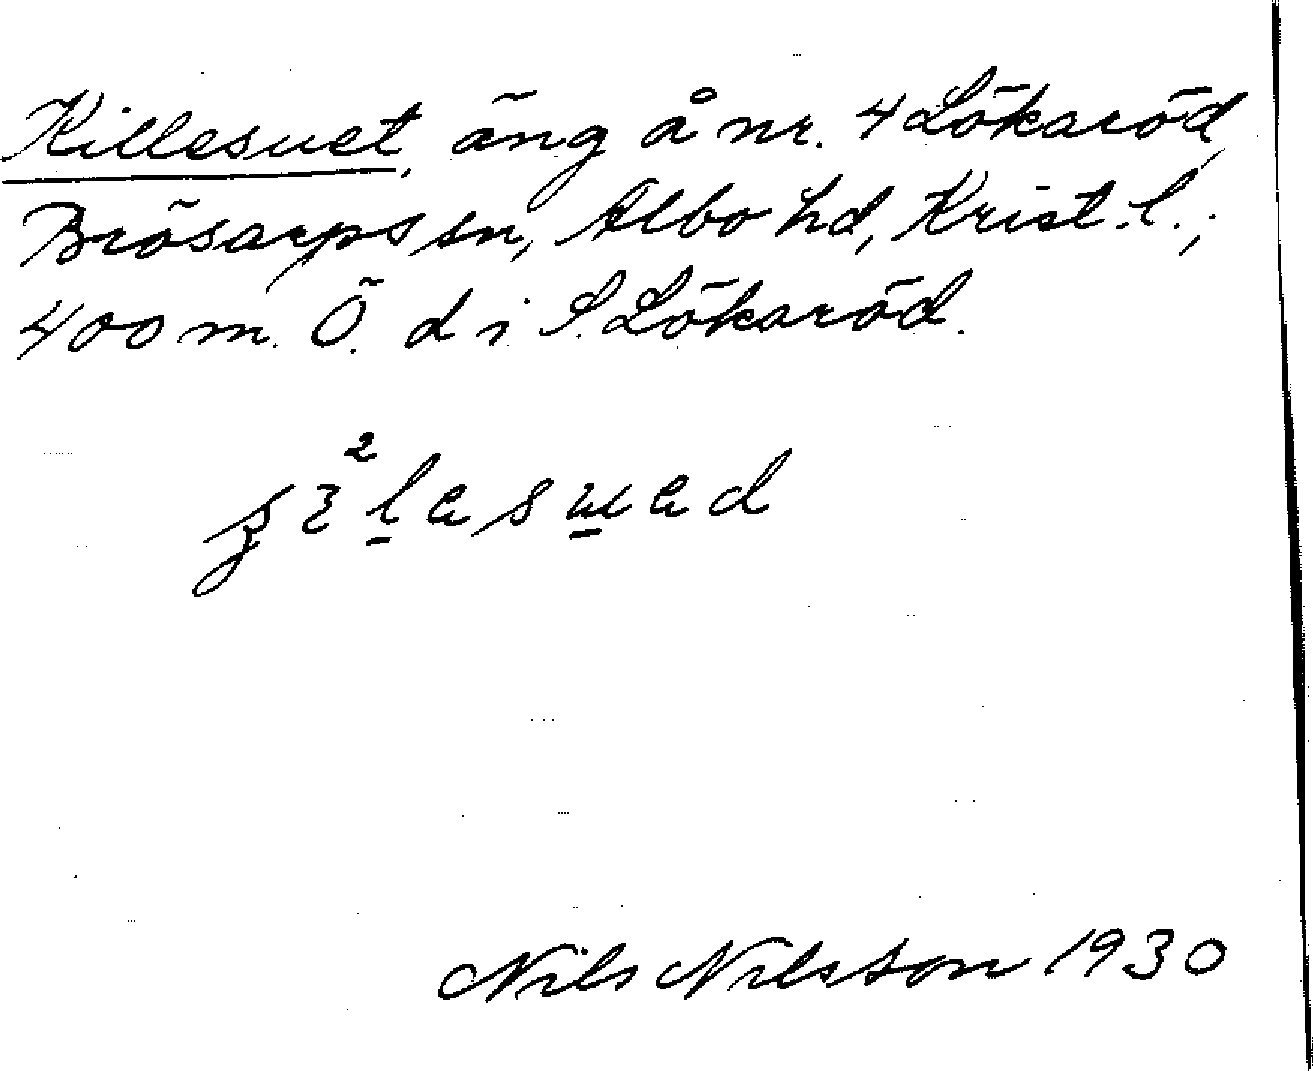 Killesuet, äng å nr. 4 Lökaröd,
Brösarps sn, Albo hd, Krist. l.;
400 m. Ö. d i S. Lökaröd.
Nils Nilsson 1930